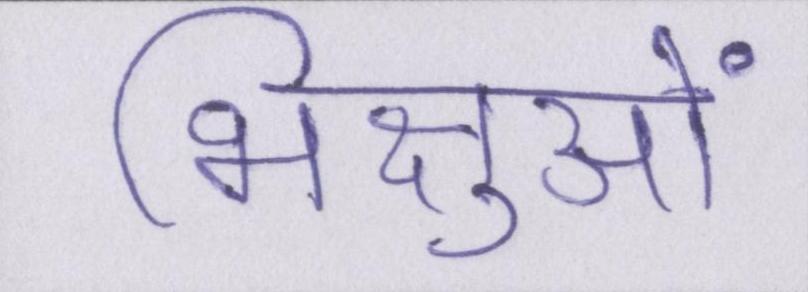 भिक्षुओं